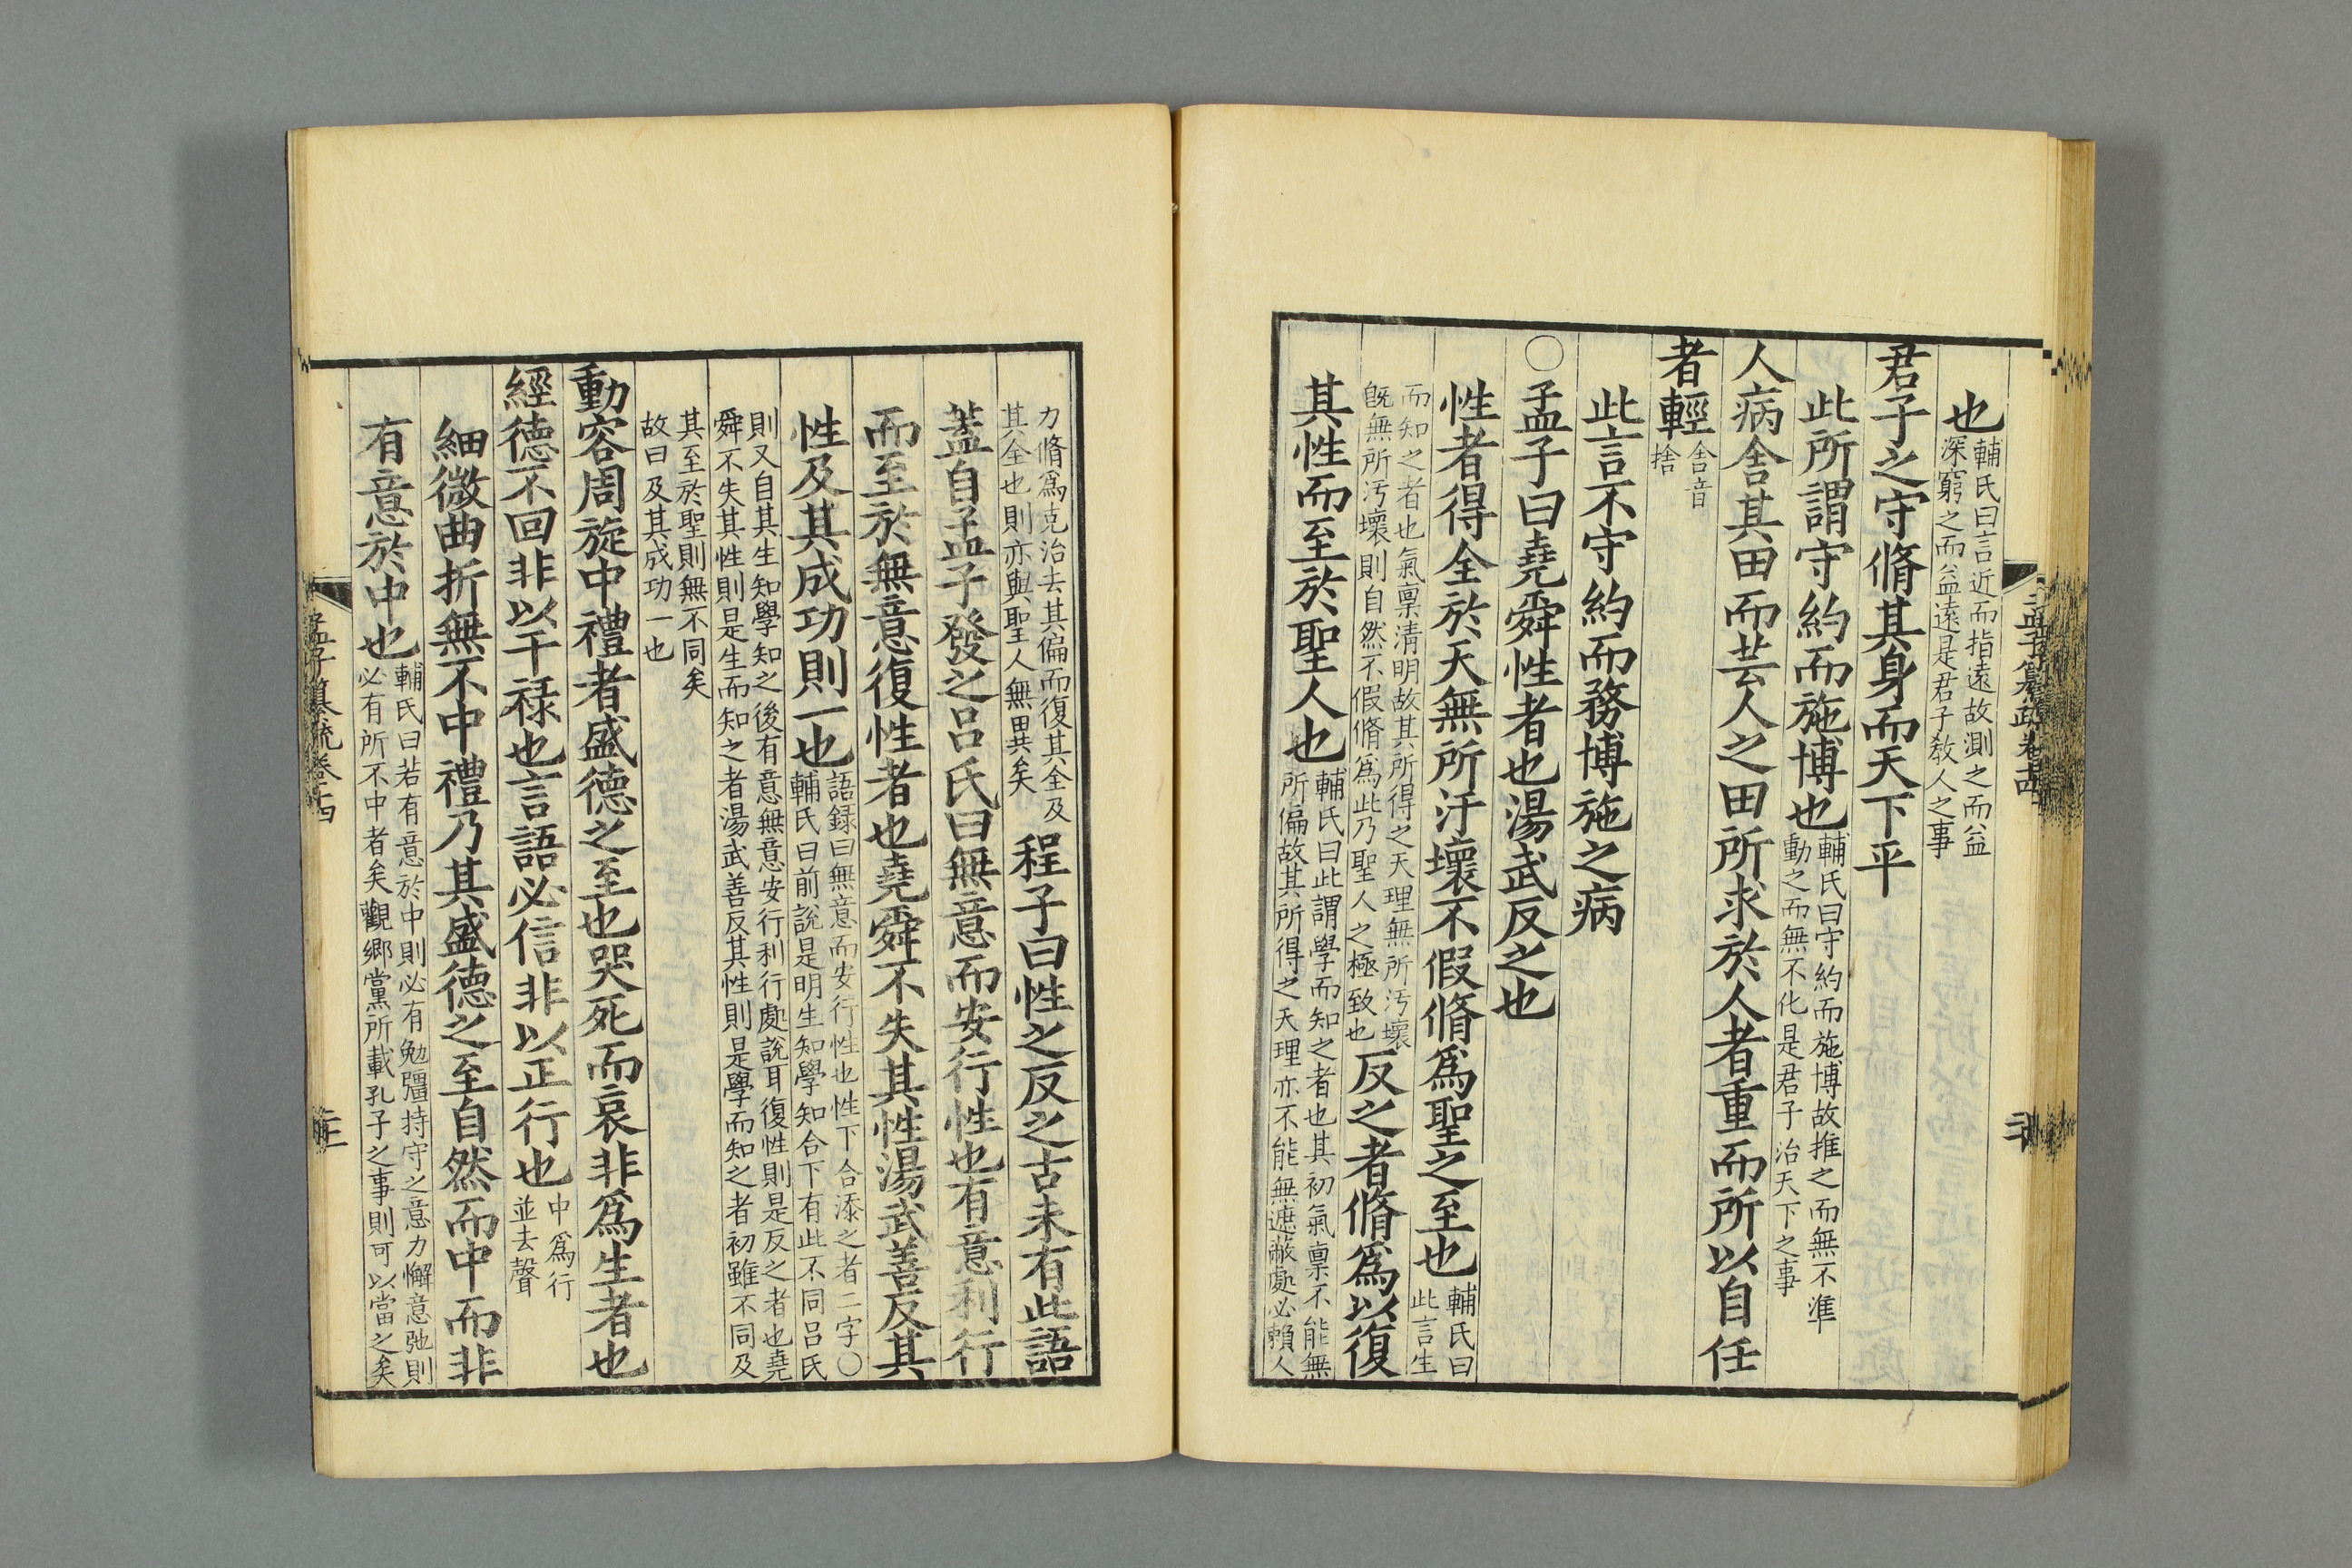 也輔氏曰言近而指遠故測之而益
深窮之而益遠是君子敎人之事
君子之守脩其身而天下平
此所謂守約而施博也輔氏曰守約而施博故推之而無不準
動之而無不化是君子治天下之事
人病舍其田而芸人之田所求於人者重而所以自任
者輕舍音
捨
此言不守約而務博施之病
○孟子曰堯舜性者也湯武反之也
性者得全於天無所汙壞不假脩爲聖之至也輔氏曰
此言生
而知之者也氣禀淸明故其所得之天理無所汚壞
旣無所汚壞則自然不假脩爲此乃聖人之極致也
反之者脩爲以復
其性而至於聖人也輔氏曰此謂學而知之者也其初氣禀不能無
所偏故其所得之天理亦不能無遮蔽處必賴人
孟子纂疏卷十四
力脩爲克治去其偏而復其全及
其全也則亦與聖人無異矣
程子曰性之反之古未有此語
蓋自孟子發之呂氏曰無意而安行性也有意利行
而至於無意復性者也堯舜不失其性湯武善反其
性及其成功則一也語録曰無意而安行性也性下合添之者二字○
輔氏曰前說是明生知學知合下有此不同呂氏
則又自其生知學知之後有意無意安行利行處說耳復性則是反之者也堯
舜不失其性則是生而知之者湯武善反其性則是學而知之者初雖不同及
其至於聖則無不同矣
故曰及其成功一也
動容周旋中禮者盛德之至也哭死而哀非爲生者也
經德不回非以干禄也言語必信非以正行也中爲行
並去聲
細微曲折無不中禮乃其盛德之至自然而中而非
有意於中也輔氏曰若有意於中則必有勉彊持守之意力懈意弛則
必有所不中者矣觀鄉黨所載孔子之事則可以當之矣
孟子纂疏卷十四